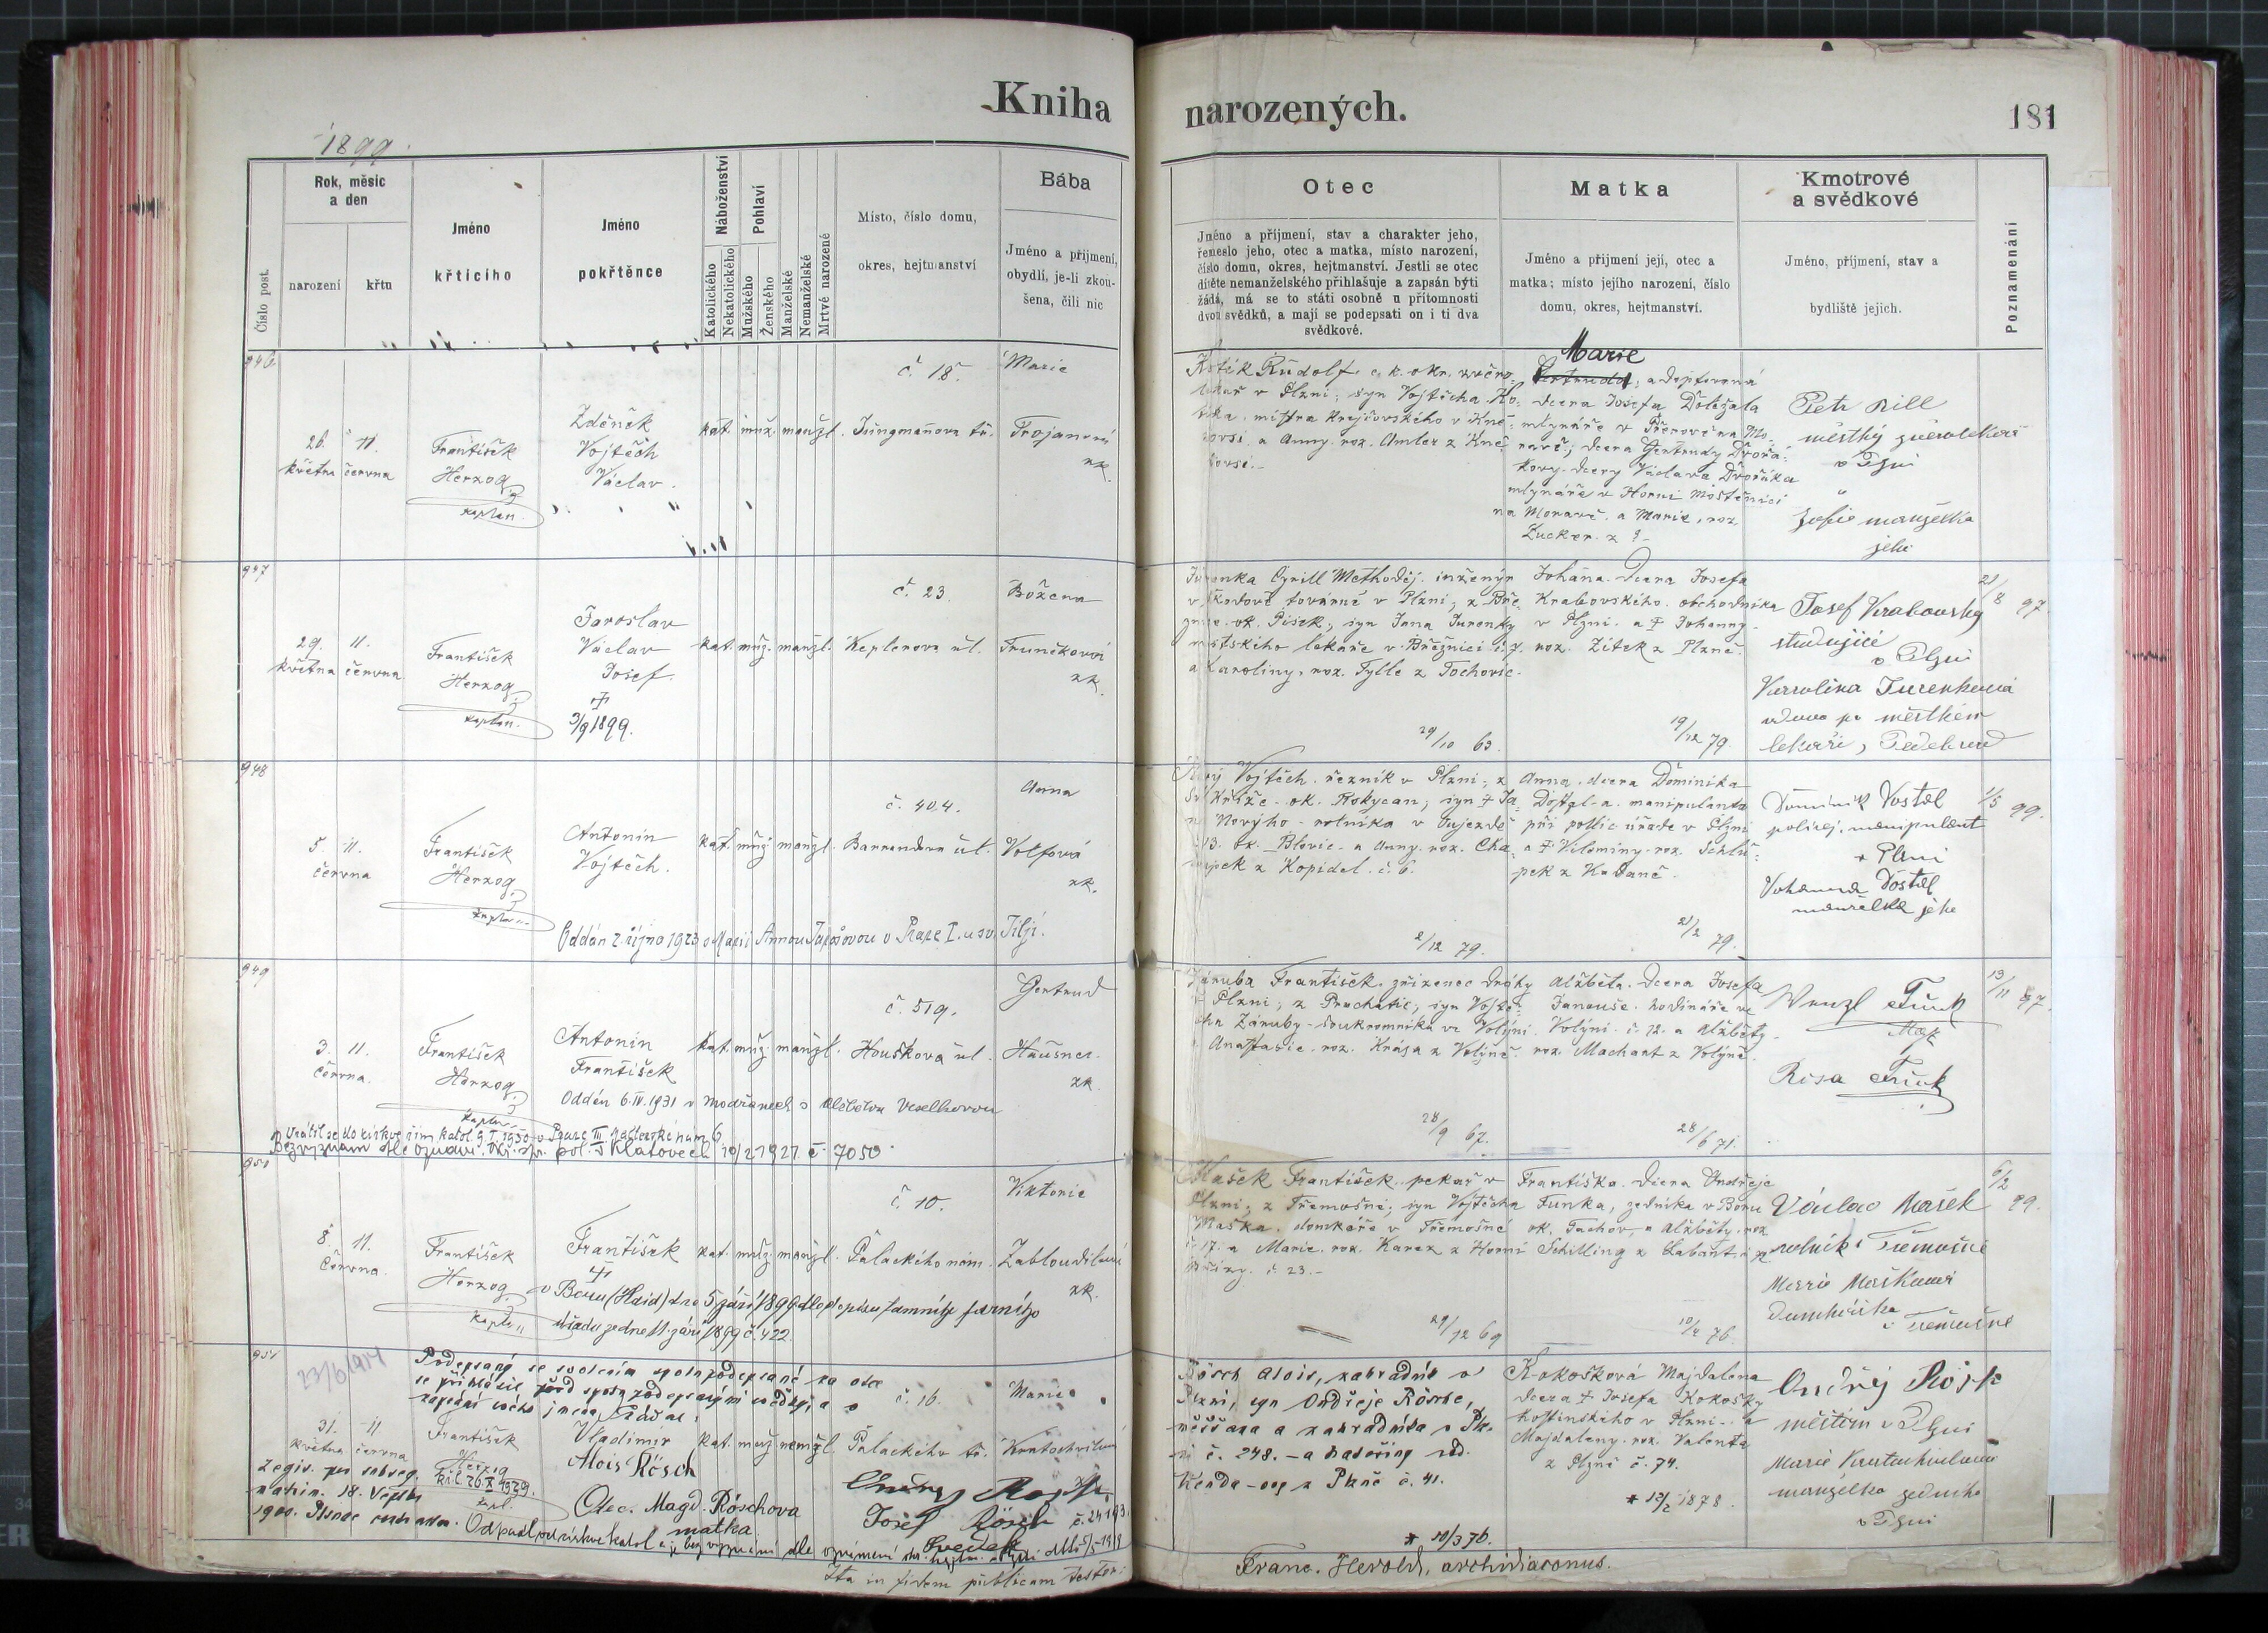 Kniha narozených.
181
1899
Číslo post.
Rok, měsíc a den
narození
křtu
Jméno křtícího
Jméno pokřtěnce
Náboženství
Katolického
Nekatolického
Pohlaví
Mužského
Ženského
Manželské
Nemanželské
Mrtvě narozené
Místo, číslo domu,
okres, hejtmanství
Bába
Jméno a příjmení,
obydlí, je-li zkou-
šena, čili nic
Otec
Jméno a příjmení, stav a charakter jeho,
řemeslo jeho, otec a matka, místo narození,
číslo domu, okres, hejtmanství. Jestli se otec
dítěte nemanželského přihlašuje a zapsán býti
žádá, má se to státi osobně u přítomnosti
dvou svědků, a mají se podepsati on i ti dva
svědkové.
Matka
Jméno a příjmení její, otec a
matka; místo jejího narození, číslo
domu, okres, hejtmanství.
Kmotrové
a svědkové
Jméno, příjmení, stav a
bydliště jejich.
Poznamenání
946
26. 11.
května června
František
Herzog
kaplan.
Zdeněk
Vojtěch
Václav.
kat. muž. manžl.
č. 18.
Jungmanova tř.
Marie
Trojanová
zk.
Kotík Rudolf c. k. okr. zvěro-
lékař v Plzni; syn Vojtěcha Ko-
tíka, mistra krejčovského v Kně-
a Anny roz. Amler z Kně-
Marie
Gertruda, adoptovaná
dcera Josefa Doležala
mlynáře v Přerově na Mo-
ravě; dcera Gertrudy Dvořá-
kovy, dcery Václava Dvořáka
mlynáře v Horní Moštěnici
na Moravě a Marie, roz.
Zucker z ?
Petr Rill
městký zvěrolékař
v Plzni
Žofie manželka
jeho
947
29. 11.
května června
František
Herzog
kaplan.
Jaroslav
Václav
Josef.
3/9 1899.
kat. muž. manžl.
č. 23.
Keplerova ul.
Božena
Trunečková
zk.
Jurenka Cyrill Methoděj, inženýr
v Škodově továrně v Plzni; z Bře-
znice ok. Písek, syn Jana Jurenky
městského lékaře v Březnici
a Karoliny, roz. Tylle z Tochovic.
29/10 63.
Johana, dcera Josefa
Krabovského, obchodníka
v Plzni a † Johanny
roz. Zítek z Plzně.
19/12 79.
Josef Krabovský
studující
v Plzni
Karolina Jurenková
vdova po městkém
lékaři,
21/8 97.
948
5. 11.
června
František
Herzog
kaplan
Antonín
Vojtěch.
kat. muž. manžl.
č. 404.
Barrandova ul.
Anna
Volfová
zk.
Oddán 2. října 1923 s Marií Annou v Praze I. u sv. Jiljí.
Nový Vojtěch, řezník v Plzni; z
Sv. Kříže ok. Rokycan; syn † Ja-
na Nového rolníka v Oujezdě
č. 13. ok. Blovic a Anny roz. Cha-
z Kopidel č. 6.
2/12 79.
Anna, dcera Dominika
Dostal-a manipulanta
při policii úřadě v Plzni
a † Vilemíny roz. Schlů-
pek z Kadaně.
21/2 79.
Dominik Dostal
policej. manipulant
v Plzni
Johanna Dostal
manželka jeho
1/5 99.
949
3. 11.
června.
František
Herzog
kaplan
Antonín
František
kat. muž. manžl.
č. 519.
Houškova ul.
Gertrud
Hausner
zk.
Oddán 6.IV.1931 v Modřanech s Alžbětou Veselkovou
Vrátil se do církve řím. katol. 9.I.1950 v Praze III.
Bez vyznání dle oznám. okr. spr. pol. v Klatovech 10/2 1921 č. 7050
Záruba František, zřízenec dráhy
v Plzni; z Prachatic; syn Vojtě-
cha Záruby, soukromníka ve Volyni
a Anastasie, roz. Krása z Volyně.
28/9 67.
Alžběta, dcera Josefa
Janouše, hodináře ve
Volyni č. 12. a Alžběty
roz. Machart z Volyně.
28/6 71.
Wenzl Fink
Risa Fink
13/11 97.
950
8. 11.
června.
František
Herzog
kaplan
František
kat. muž. manžl.
č. 10.
Palackého nám.
Viktorie
Zabloudilová
zk.
v Boru (Haid) dne 5 září 1899 dle dopisu tamního farního
úřadu ze dne 11. září 1899 č. 422
Mašek František, pekař v
Plzni; z Třemošné; syn Vojtěcha
Maška, domkáře v Třemošné
č. 17. a Marie, roz. Karex z Horní
Břízy. č. 23.
29/12 69
Františka, dcera Ondřeje
Funka, zedníka v Boru
ok. Tachov, a Alžběty, roz.
Schilling z Labant
10/2 76.
Václav Mašek
rolník Třemošné
Marie Mašková
Třemošné
6/2 99.
951
23/6 1914
Podepsaný se svolením spolupodepsané za otce
se přihlásil před spolu podepsanými svědky, a o
zapsání svého jména žádal.
31. 11
května června
František
Herzog
kapl.
Vladimir
Alois Rösch
kat. muž. nemžl.
č. 16.
Palackého tř.
Marie
Kratochvilová
Legit. per subseq.
matrim. 18.
1900.
Olec. Magd. Röschova
matka.
Josef Rösch
svědek
Odpadl od církve katol. a je bez vyznání dle oznámení
Ita in fidem publicam testor:
Franc. Herold, archidiaconus.
Rösch Alois, zahradník v
Plzni, syn Ondřeje Rösche,
měšťana a zahradníka v Plz-
ni č. 248. a Kateřiny roz.
z Plzně č. 41.
* 10/3 76.
Kokošková Majdalena
dcera † Josefa Kokošky
hostinského v Plzni a
Majdaleny, roz. Valenta
z Plzně č. 74.
* 12/2 1878.
Ondřej Rösch
měštan v Plzni
Marie Kratochvilová
manželka zedníka
v Plzni